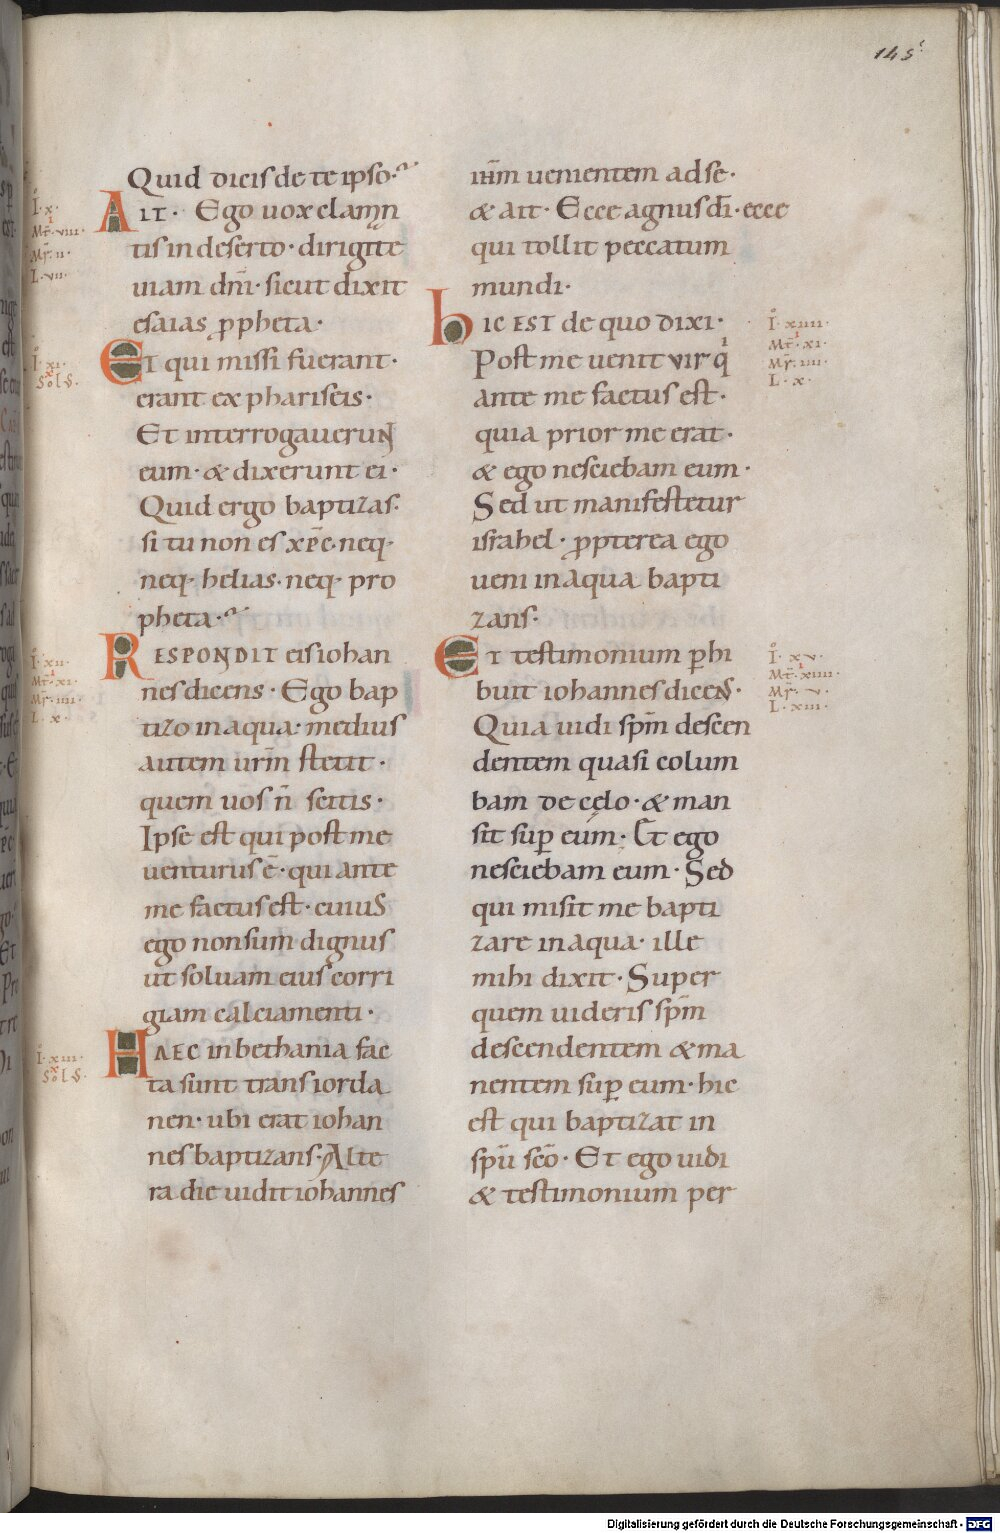 145
Quid dicis de te ipso·
AIT· Ego uox claman
tis in deserto· dirigite
uiam dn̄i· sicut dixit
esaias ꝓpheta·
Et qui missi fuerant·
erant ex phariseis·
Et interrogauerun
eum· & dixerunt ei·
Quid ergo baptizas·
si tu non es xp̄c· neq·
neq· helias· neq· pro
pheta·
RESPONDIT eis iohan
nes dicens· Ego bap
tizo in aqua· medius
autem ur̄m stetit·
quem uos n̄ scitis·
Ipse est qui post me
uenturus ē· qui ante
me factus est· cuius
ego non sum dignus
ut soluam eius corri
giam calciamenti·
HAEC in bethania fac
ta sunt trans iorda
nen· ubi erat iohan
nes baptizans· Alte
ra die uidit iohannes
ih̄m uenientem ad se·
& ait· Ecce agnus dī· ecce
qui tollit peccatum
mundi·
hIC EST de quo dixi·
Post me uenit vir qi
ante me factus est·
quia prior me erat·
& ego nesciebam eum·
Sed ut manifestetur
israhel· ꝓpterea ego
ueni in aqua bapti
zans·
ET testimonium ꝑhi
buit iohannes dicens·
Quia uidi sp̄m descen
dentem quasi colum
bam de cęlo· & man
sit suꝑ eum· Et ego
nesciebam eum· Sed
qui misit me bapti
zare in aqua· ille
mihi dixit· Super
quem uideris sp̄m
descendentem & ma
nentem suꝑ eum· hic
est qui baptizat in
sp̄u sc̄o· Et ego uidi
& testimonium per
I· x·
Mt̄· viii·
Mr̄· ii·
L· vii·
I· xi·
Sol S·
I· xii·
Mt̄· xi·
Mr̄· iiii·
L· x·
I· xiii·
Sol S·
I· xiiii·
Mt̄· xi·
Mr̄· iiii·
L· x·
I· xv·
Mt̄· xiiii·
Mr̄· v·
L· xiii·
Digitalisierung gefördert durch die Deutsche Forschungsgemeinschaft - DFG